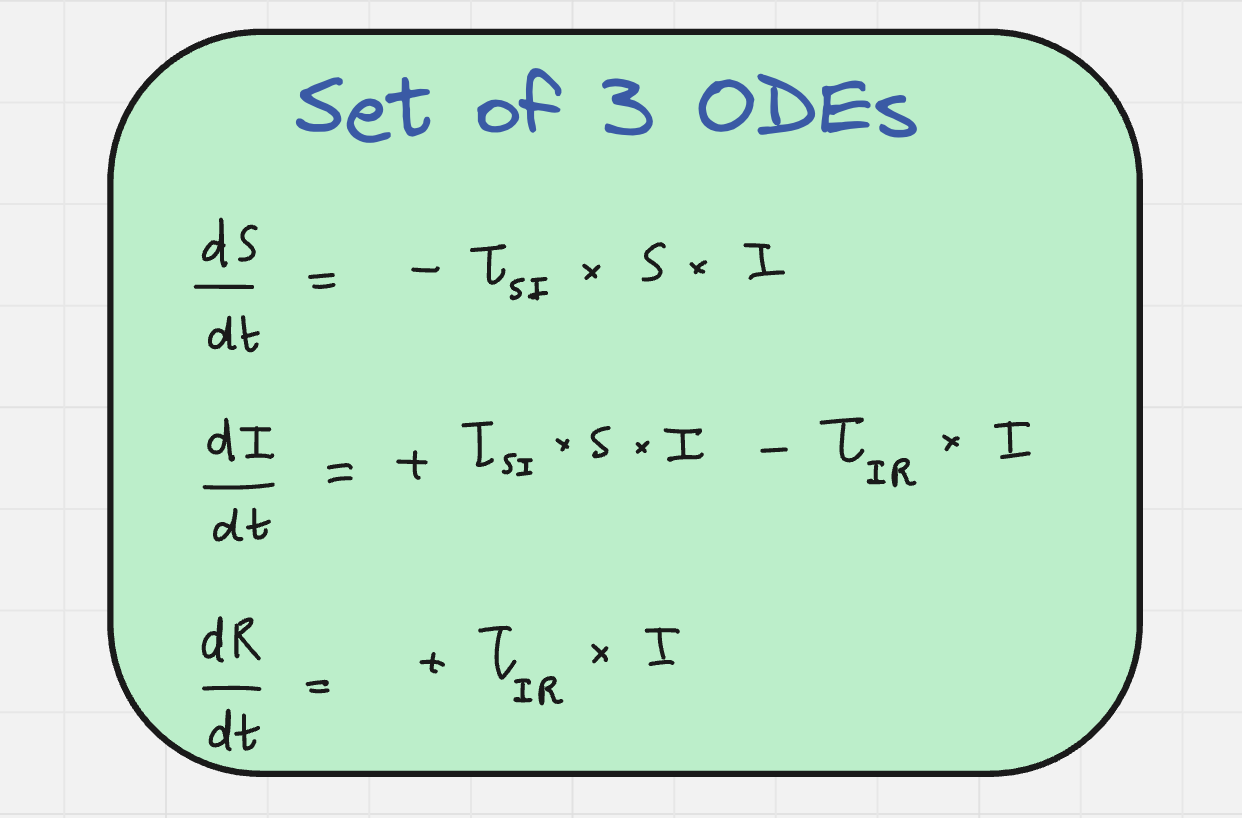 Set of 3 ODEs
dS/dt = - τ_SI × S × I
dI/dt = + τ_SI × S × I - τ_IR × I
dR/dt = + τ_IR × I